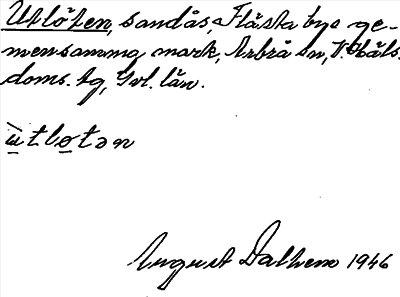 Utlöten, sandås, Flästa bys ge-
mensamma mark, Arbrå sn, V. Häls.
doms. tg, Gvl. län.
ùtlotən
August Dalhem 1946